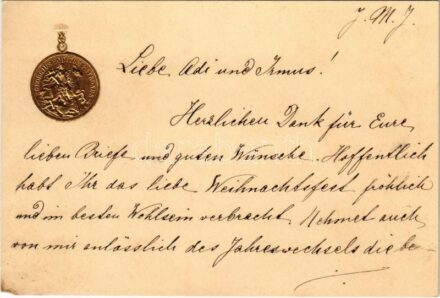 J. M. J.
Liebe Adi und Irmus!
Herzlichen Dank für Eure
lieben Briefe und guten Wünsche. Hoffentlich
habt Ihr das liebe Weihnachtsfest fröhlich
und im besten Wohlsein verbracht. Nehmet auch
von mir anlässlich des Jahreswechsels die be-